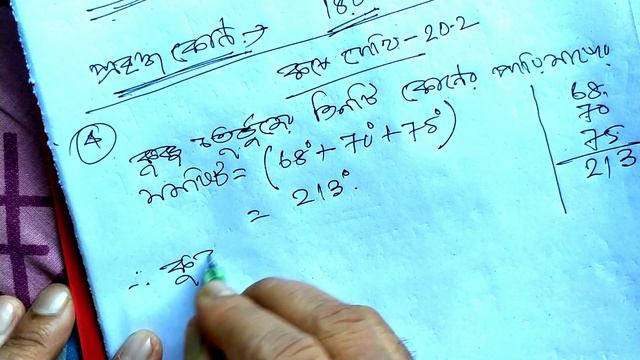 180
প্রবৃদ্ধ কোণ →
কষে দেখি - 20.2
④ কুব্জ চতুর্ভুজের তিনটি কোণের পরিমাপের
সমষ্টি = (68° + 70° + 75°)
= 213°.
∴ কু
68
70
75
213